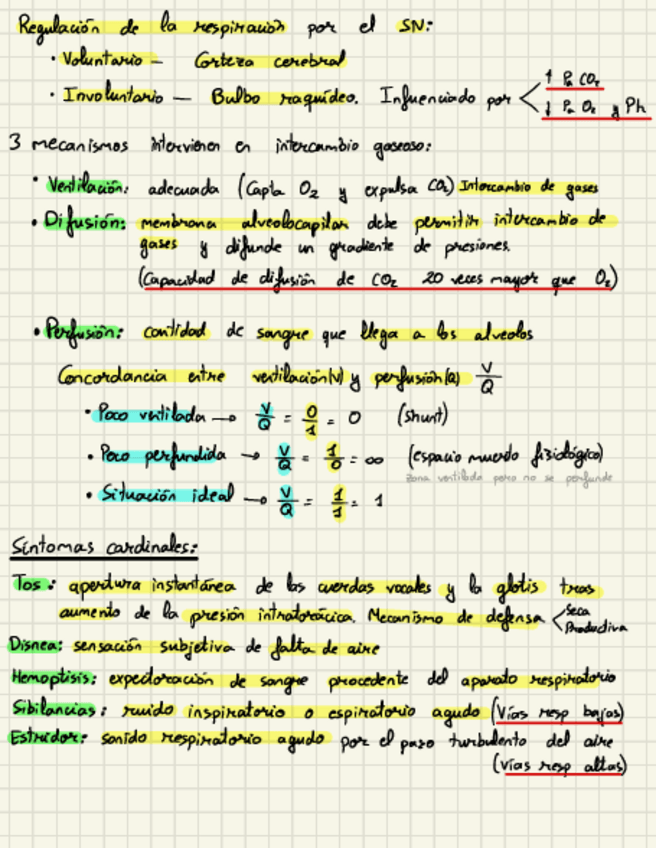 Regulación de la respiración por el SN:
· Voluntario – Corteza cerebral
· Involuntario — Bulbo raquídeo. Influenciado por < ↑ Pa CO₂
↓ Pa O₂ y Ph
3 mecanismos intervienen en intercambio gaseoso:
· Ventilación: adecuada (Capta O₂ y expulsa CO₂) Intercambio de gases
· Difusión: membrana alveolocapilar debe permitir intercambio de
gases y difunde un gradiente de presiones.
(Capacidad de difusión de CO₂ 20 veces mayor que O₂)
· Perfusión: cantidad de sangre que llega a los alveolos
Concordancia entre ventilación(V) y perfusión(Q) V/Q
· Poco ventilada → V/Q = 0/1 = 0 (shunt)
· Poco perfundida → V/Q = 1/0 = ∞ (espacio muerto fisiológico)
zona ventilada pero no se perfunde
· Situación ideal → V/Q = 1/1 = 1
Síntomas cardinales:
Tos: apertura instantánea de las cuerdas vocales y la glotis tras
aumento de la presión intratorácica. Mecanismo de defensa < Seca
Productiva
Disnea: sensación subjetiva de falta de aire
Hemoptisis: expectoración de sangre procedente del aparato respiratorio
Sibilancias: ruido inspiratorio o espiratorio agudo (Vías resp bajas)
Estridor: sonido respiratorio agudo por el paso turbulento del aire
(Vías resp altas)